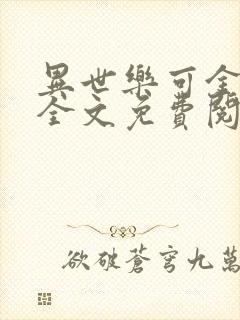 異世樂可全
全文免費閱
欲破蒼穹九萬